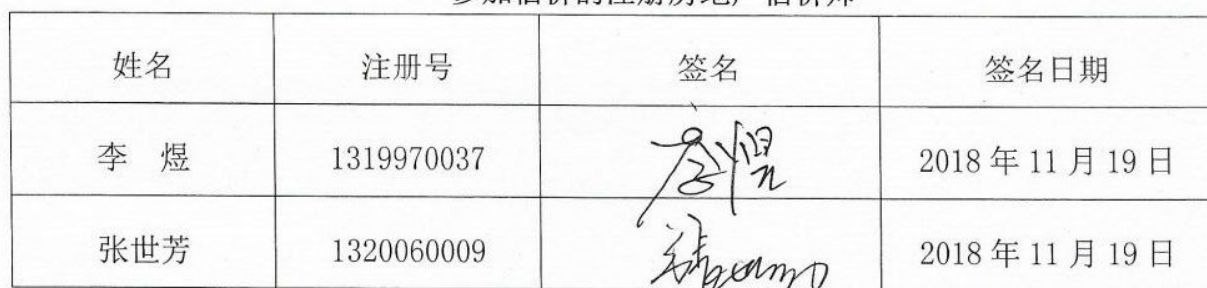 参加估价的注册房地产估价师
姓名 注册号 签名 签名日期
李 煜 1319970037 李煜 2018年11月19日
张世芳 1320060009 2018年11月19日